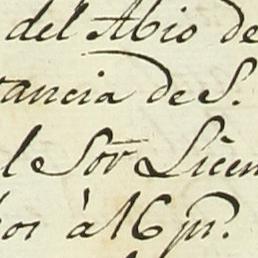 del Abio de
tancia de S.
l Sor Licen
os à 16 ps.